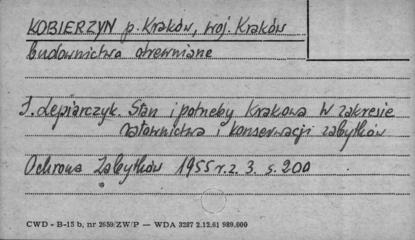 KOBIERZYN p. Kraków, woj. Kraków
budownictwo drewniane
J. Lepiarczyk. Stan i potrzeby Krakowa w zakresie
ratownictwa i konserwacji zabytków
Ochrona Zabytków 1955 r. z. 3. s. 200
CWD - B-15 b, nr 2659/ZW/P — WDA 3287 2.12.61 989.000